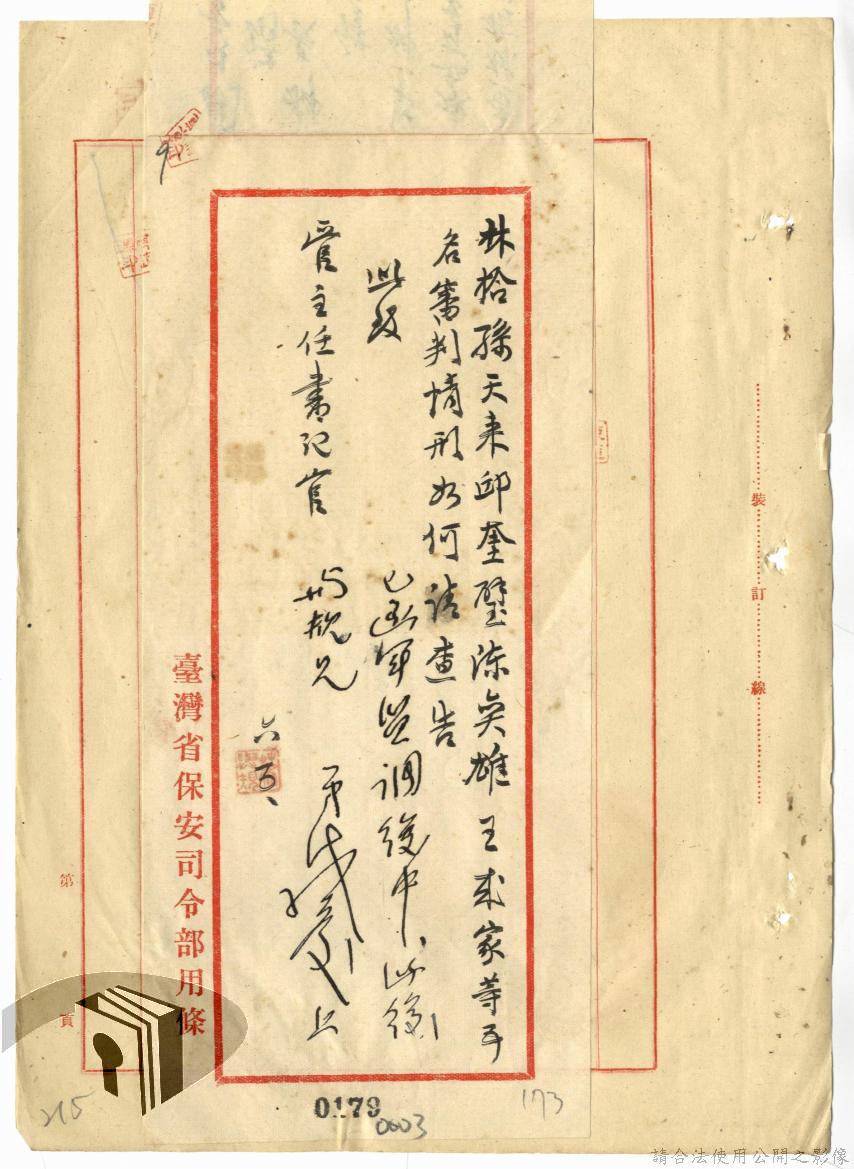 林拾孫天來邱奎璧陳奐雄王武家等五
名審判情形如何請查告
此致
管主任書記官
已函軍監調復中此復
六、五、
臺灣省保安司令部用條
裝訂線
第
頁
0179
0003
173
215
請合法使用公開之影像